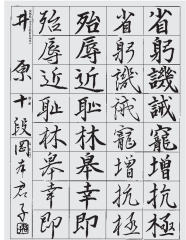 省躬譏誡寵增抗極
省躬譏誡寵增抗極
殆辱近耻林皋幸即
殆辱近耻林皋幸即
井原 十段 岡本君子